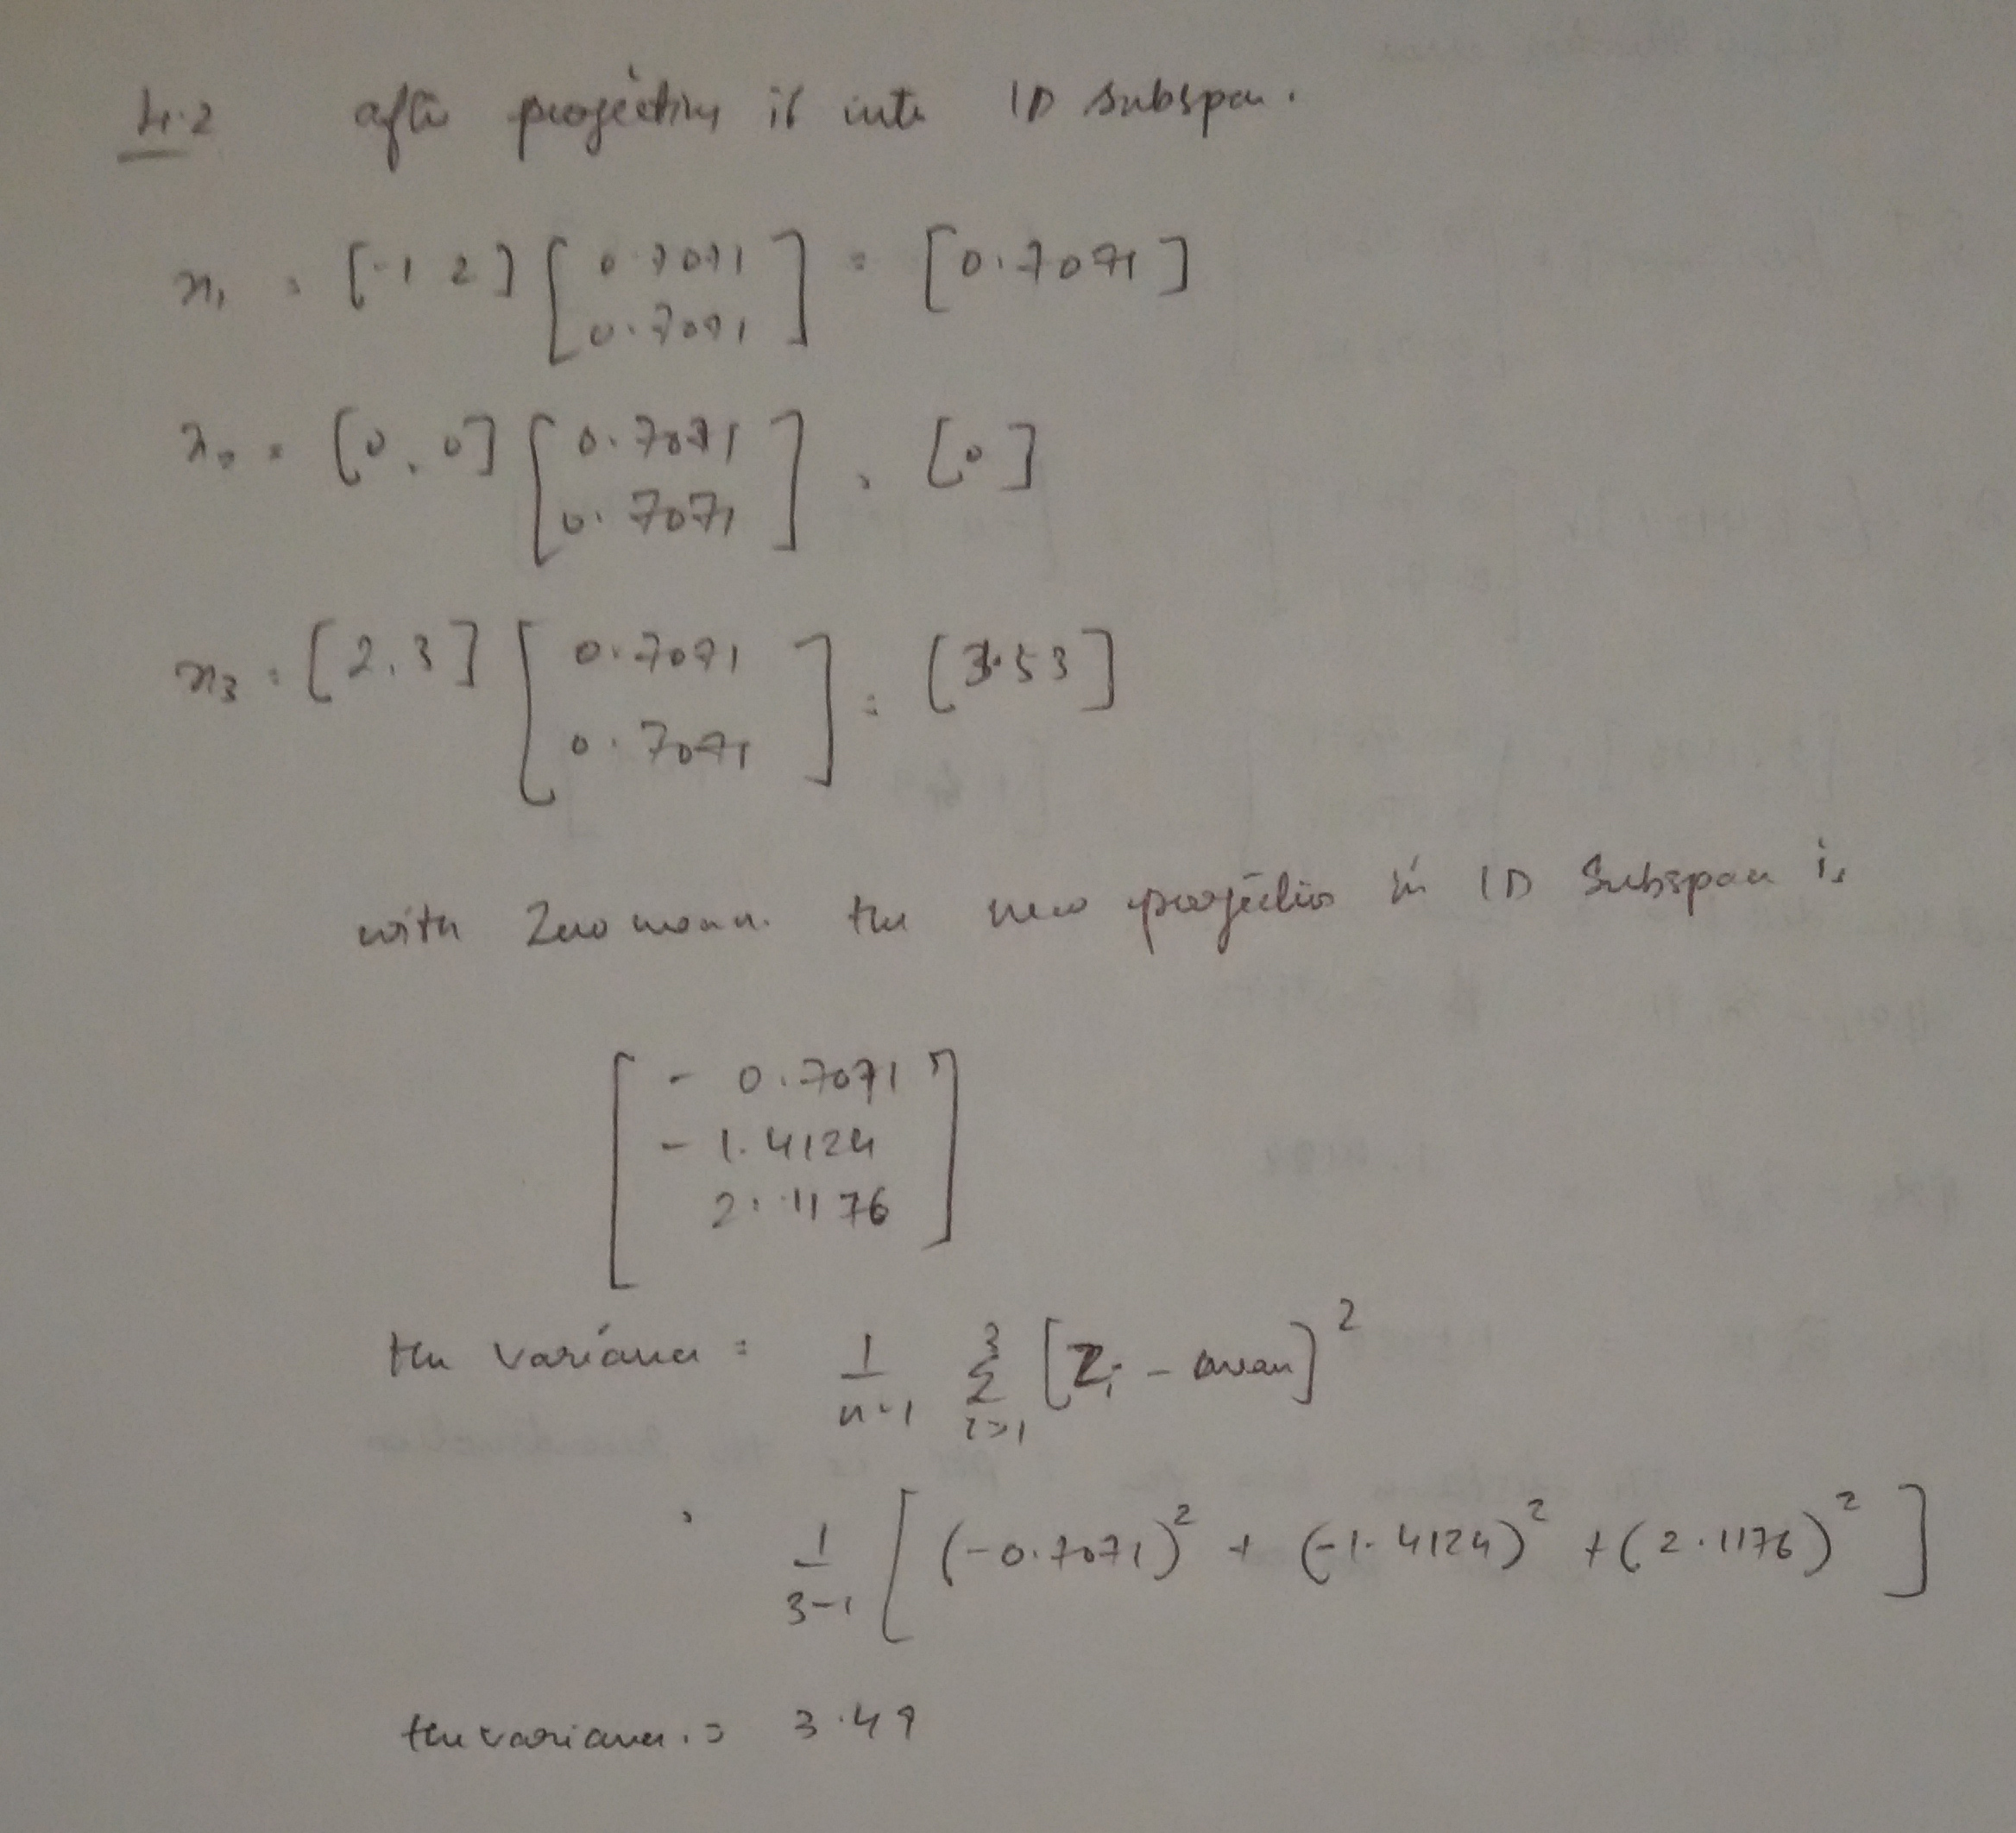 4.2 after projecting it into 1D subspace.
x₁ = [-1 2] [0.7071 0.7071] = [0.7071]
x₂ = [0, 0] [0.7071 0.7071] = [0]
x₃ = [2, 3] [0.7071 0.7071] = [3.53]
with Zero mean. the new projection in 1D Subspace is
[- 0.7071
- 1.4124
2.1176]
the variance = 1/(n-1) Σ i=1 3 [Zᵢ - mean]²
= 1/(3-1) [(-0.7071)² + (-1.4124)² + (2.1176)²]
the variance. = 3.49